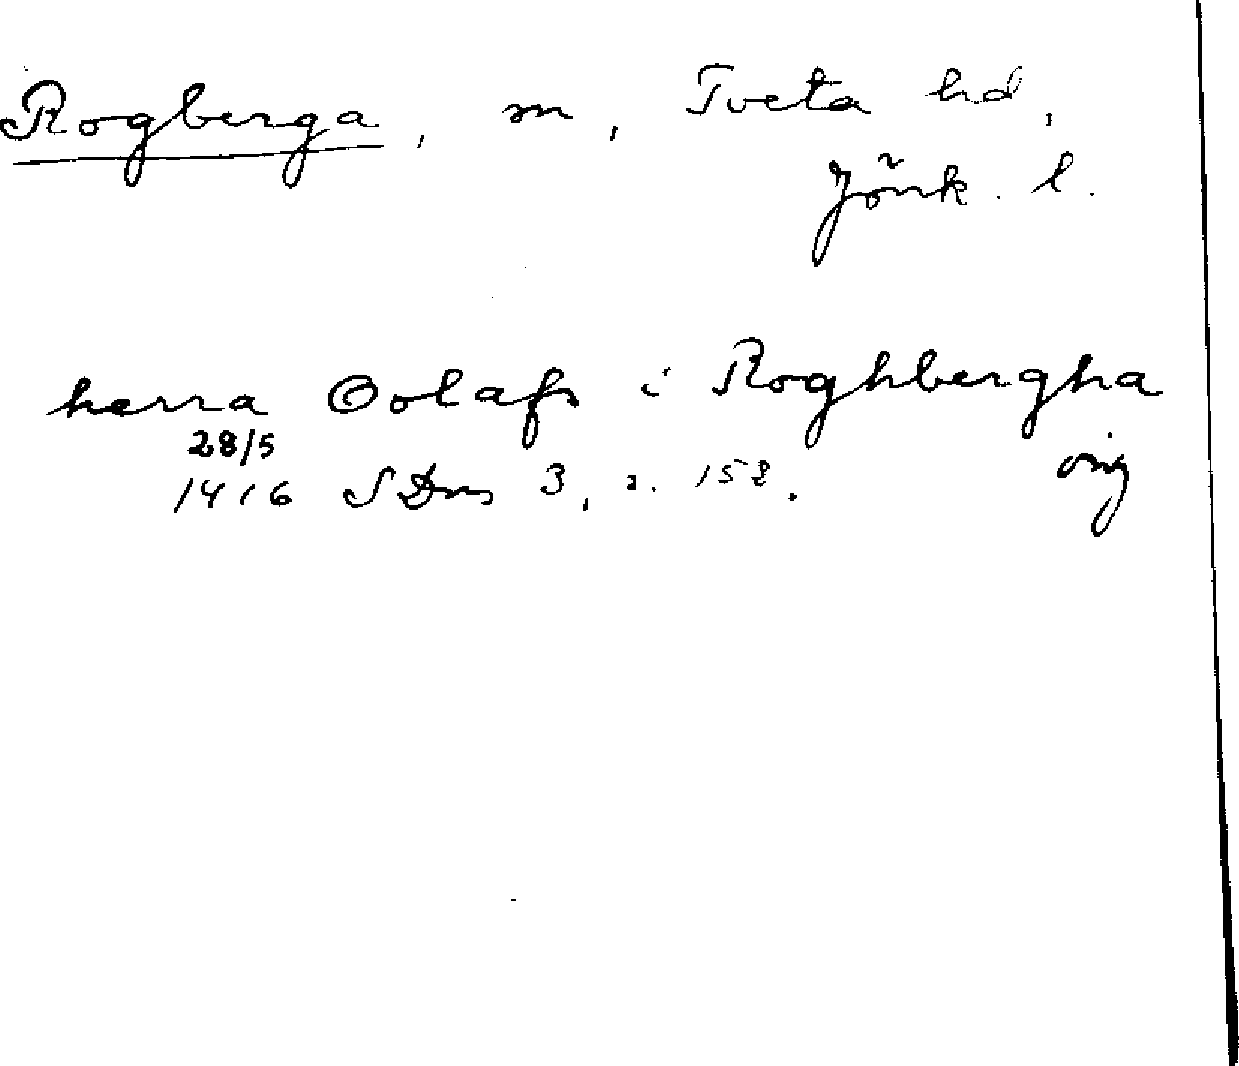 Rogberga, sn, Tveta hd,
Jönk. l.
herra Oolafs i Roghbergha
28/5 orig
1416 SDns 3, s. 152.